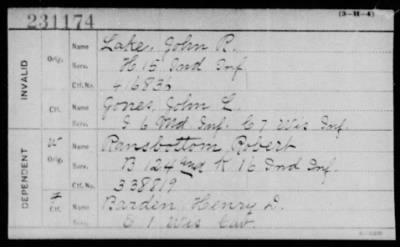 231174
(3-H-4)
INVALID
Orig.
Name Lake, John R.
Serv. H 15 Ind Inf.
Ctf. No. 416836
Ctf.
Name Jones, John L.
Serv. I 6 Md Inf. C 7 Wis Inf.
DEPENDENT
W
Orig.
Name Ransbottom, Robert
Serv. B 124 Ind K 16 Ind Inf.
Ctf. No. 338819
Ctf.
Name Barden, Henry D.
Serv. 1 Wis Cav.